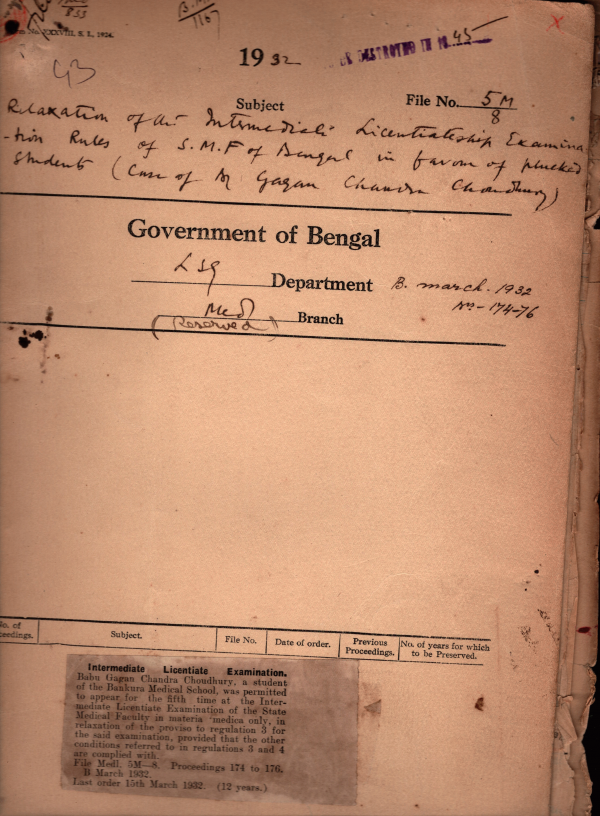 B. M.
1167
No. XXXVIII, S. I., 1924.
43
1932
DESTROYED IN 1945
Subject
File No. 5M/8
Relaxation of the Intermediate Licentiateship Examina
-tion Rules of S.M.F of Bengal in favour of plucked
students (Case of Gagan Chandra Choudhury)
Government of Bengal
LSG Department
B. March. 1932
No - 174-76
Med Branch
(Reserved)
No. of Proceedings.
Subject.
File No.
Date of order.
Previous Proceedings.
No. of years for which to be Preserved.
Intermediate Licentiate Examination.
Babu Gagan Chandra Choudhury, a student
of the Bankura Medical School, was permitted
to appear for the fifth time at the Inter-
mediate Licentiate Examination of the State
Medical Faculty in materia medica only, in
relaxation of the proviso to regulation 3 for
the said examination, provided that the other
conditions referred to in regulations 3 and 4
are complied with.
File Medl. 5M—8. Proceedings 174 to 176.
B March 1932.
Last order 15th March 1932. (12 years.)